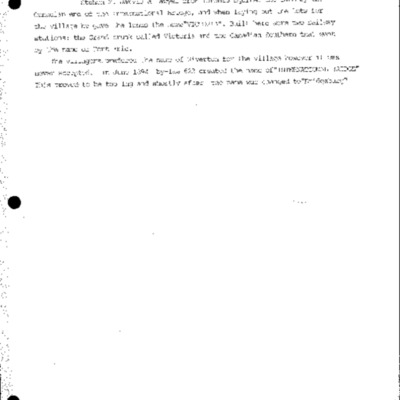 Canadian end of the International Bridge, and when laying out the lots for
the village he gave the lands the name "VICTORIA". Built here were two railway
stations: the Grand Trunk called Victoria and the Canadian Southern that went
by the name of Fort Erie.
The villagers preferred the name of Riverton for the village however it was
never accepted. In June 1894 by-law 623 created the name of "INTERNATIONAL BRIDGE"
This proved to be too long and shortly after the name was changed to "Bridgeburg"